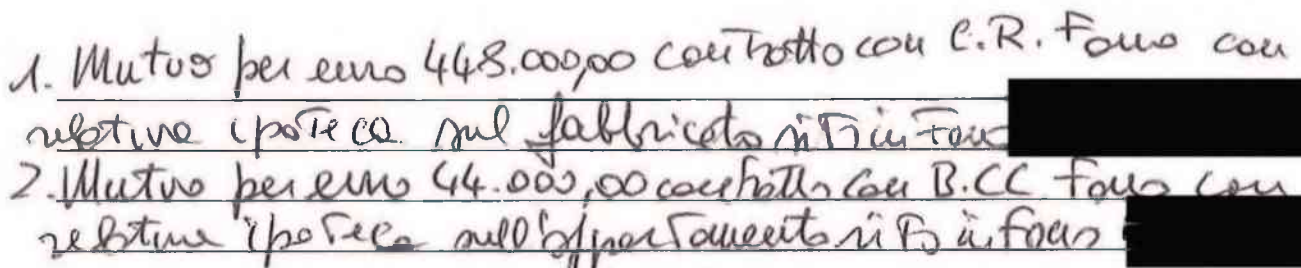 1. Mutuo per euro 448.000,00 contratto con C.R. Fano con
relativa ipoteca sul fabbricato sito in Fano
2. Mutuo per euro 44.000,00 contratto con B.CC Fano con
relativa ipoteca sull'appartamento sito in Fano